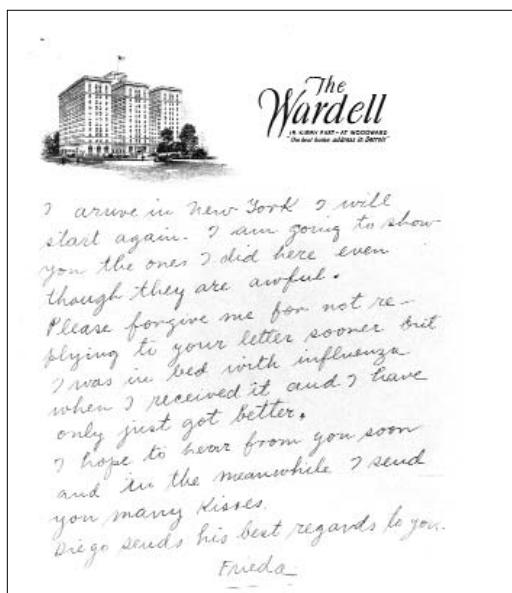 The
Wardell
IN KIRBY PART - AT WOODWARD
"the best home address in Detroit"
I arrive in New York I will
start again. I am going to show
you the ones I did here even
though they are awful.
Please forgive me for not re-
plying to your letter sooner but
I was in bed with influenza
when I received it and I have
only just got better.
I hope to hear from you soon
and in the meanwhile I send
you many kisses.
Diego sends his best regards to you.
Frieda